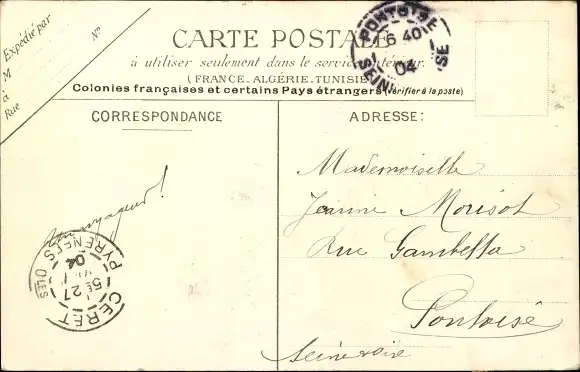 Expédié par
M
à
Rue
N°
CARTE POSTALE
à utiliser seulement dans le service intérieur.
(FRANCE-ALGÉRIE-TUNISIE)
Colonies françaises et certains Pays étrangers (Vérifier à la poste)
PONTOISE
6 40
04
SEINE
CORRESPONDANCE
ADRESSE:
Mademoiselle
Jeanne Morisot
Rue Gambetta
Pontoise
Seine & oise
Un voyageur!
CERET
5E 27
04
PYRÉNÉES OLES